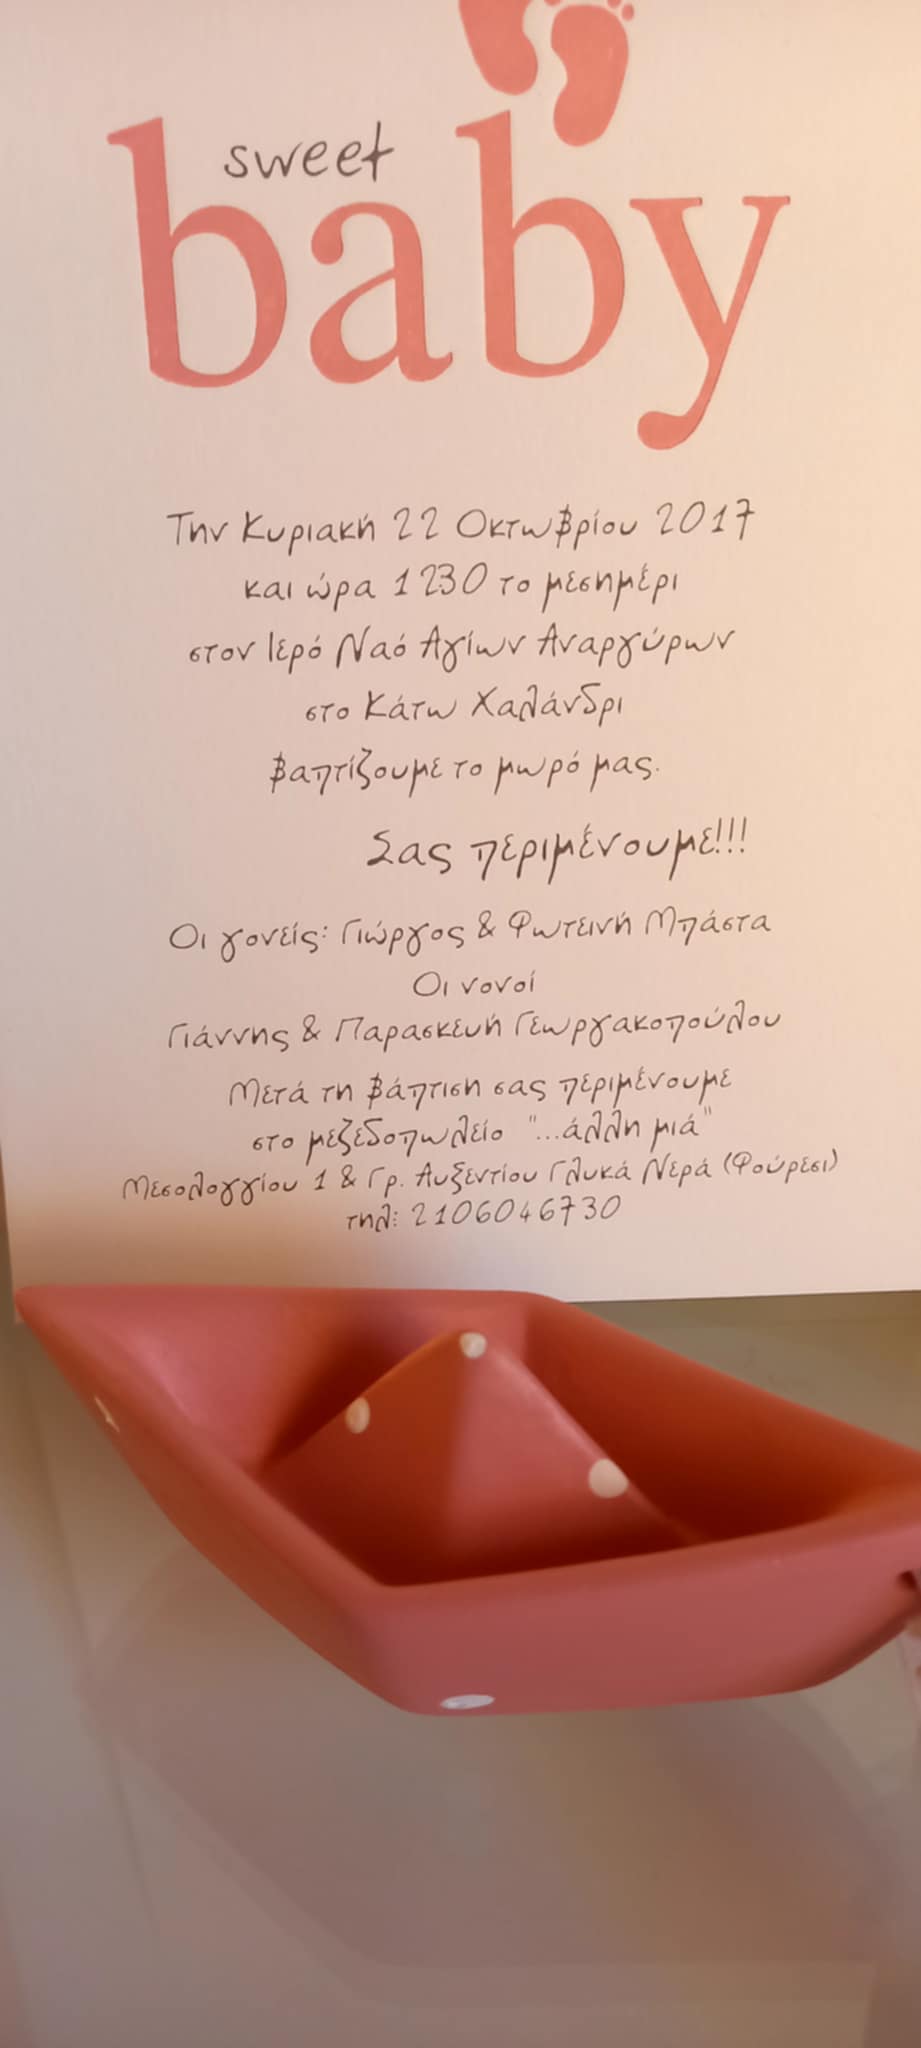 sweet
baby
Την Κυριακή 22 Οκτωβρίου 2017
και ώρα 1230 το μεσημέρι
στον Ιερό Ναό Αγίων Αναργύρων
στο Κάτω Χαλάνδρι
βαπτίζουμε το μωρό μας.
Σας περιμένουμε!!!
Οι γονείς: Γιώργος & Φωτεινή Μπάστα
Οι νονοί
Γιάννης & Παρασκευή Γεωργακοπούλου
Μετά τη βάπτιση σας περιμένουμε
στο μεζεδοπωλείο "...άλλη μιά"
Μεσολογγίου 1 & Γρ. Αυξεντίου Γλυκά Νερά (Φούρεσι)
τηλ: 2106046730